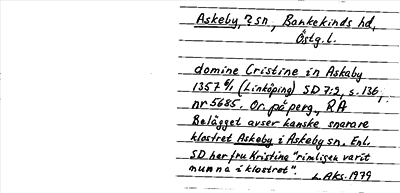 Askeby, ? sn, Bankekinds hd,
Östg. l.
domine Cristine in Askaby
1357 6/1 (Linköping) SD 7:2, s. 136,
nr 5685. Or. på perg., RA
Belägget avser kanske snarare
klostret Askeby i Askeby sn. Enl.
SD her fru Kristina "rimligen varit
nunna i klostret". L. Aks. 1979